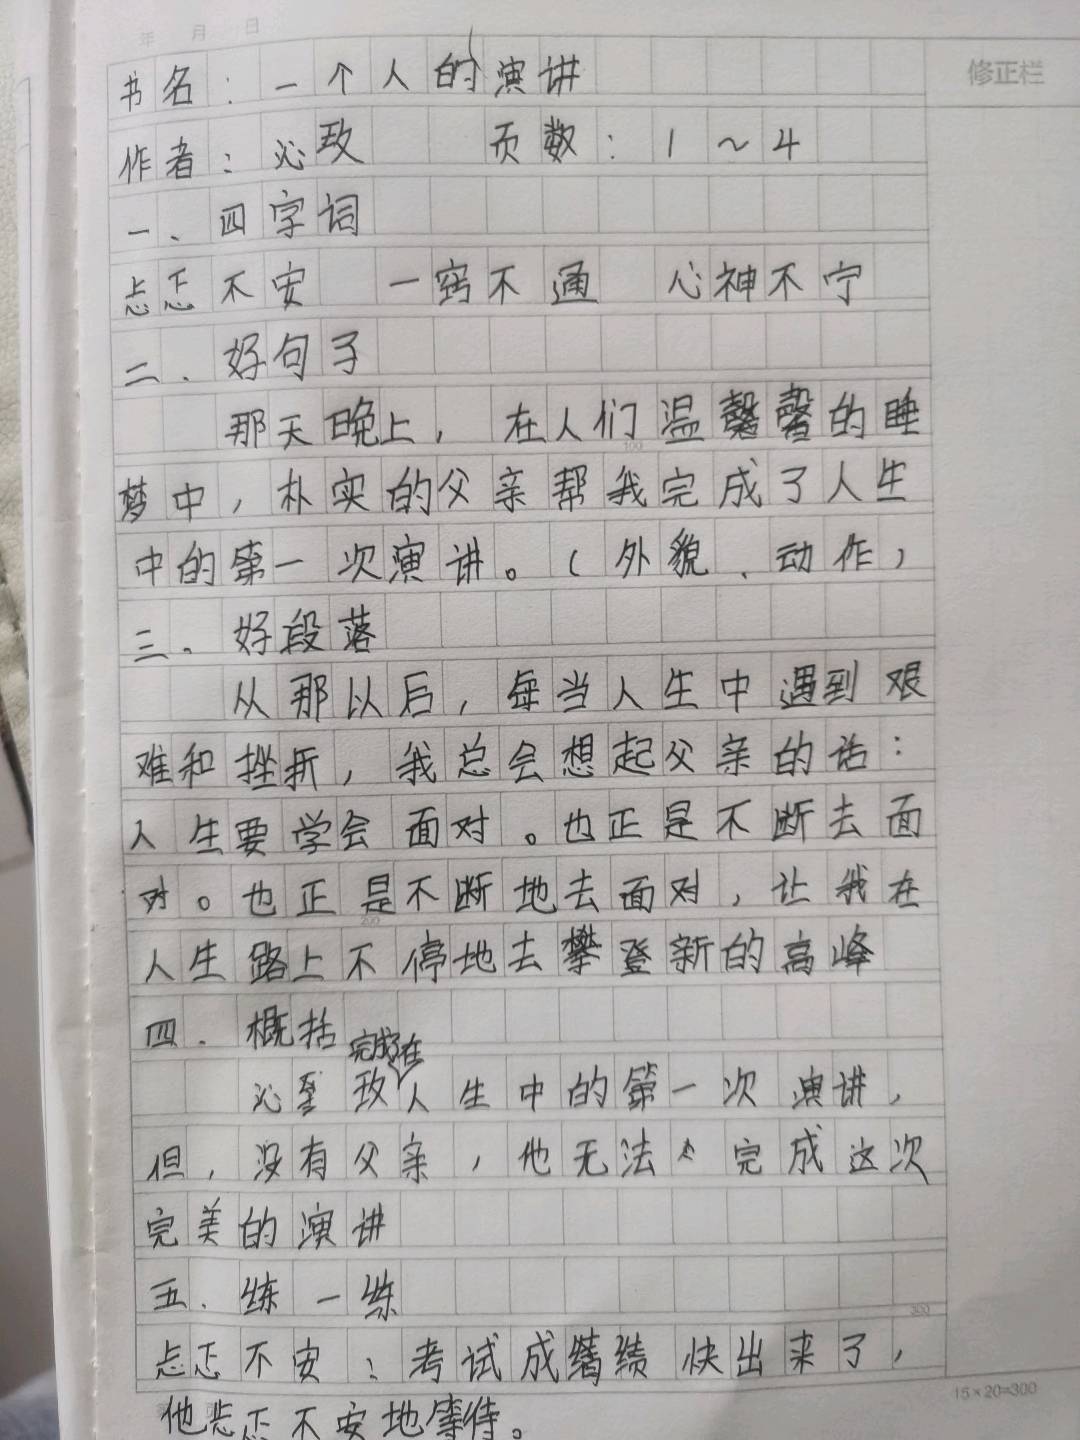 年 月 日
修正栏
书名：一个人的演讲
作者：沁玫 页数：1～4
一、四字词
忐忑不安 一窍不通 心神不宁
二．好句子
那天晚上，在人们温馨的睡
100
梦中，朴实的父亲帮我完成了人生
中的第一次演讲。（外貌、动作）
三。好段落
从那以后，每当人生中遇到艰
难和挫折，我总会想起父亲的话：
人生要学会面对。也正是不断去面
对。也正是不断地去面对，让我在
200
人生路上不停地去攀登新的高峰
四．概括
完成在
沁玫人生中的第一次演讲，
但，没有父亲，他无法完成这次
完美的演讲
五．练一练
300
忐忑不安：考试成绩快出来了，
他忐忑不安地等待。
15×20=300